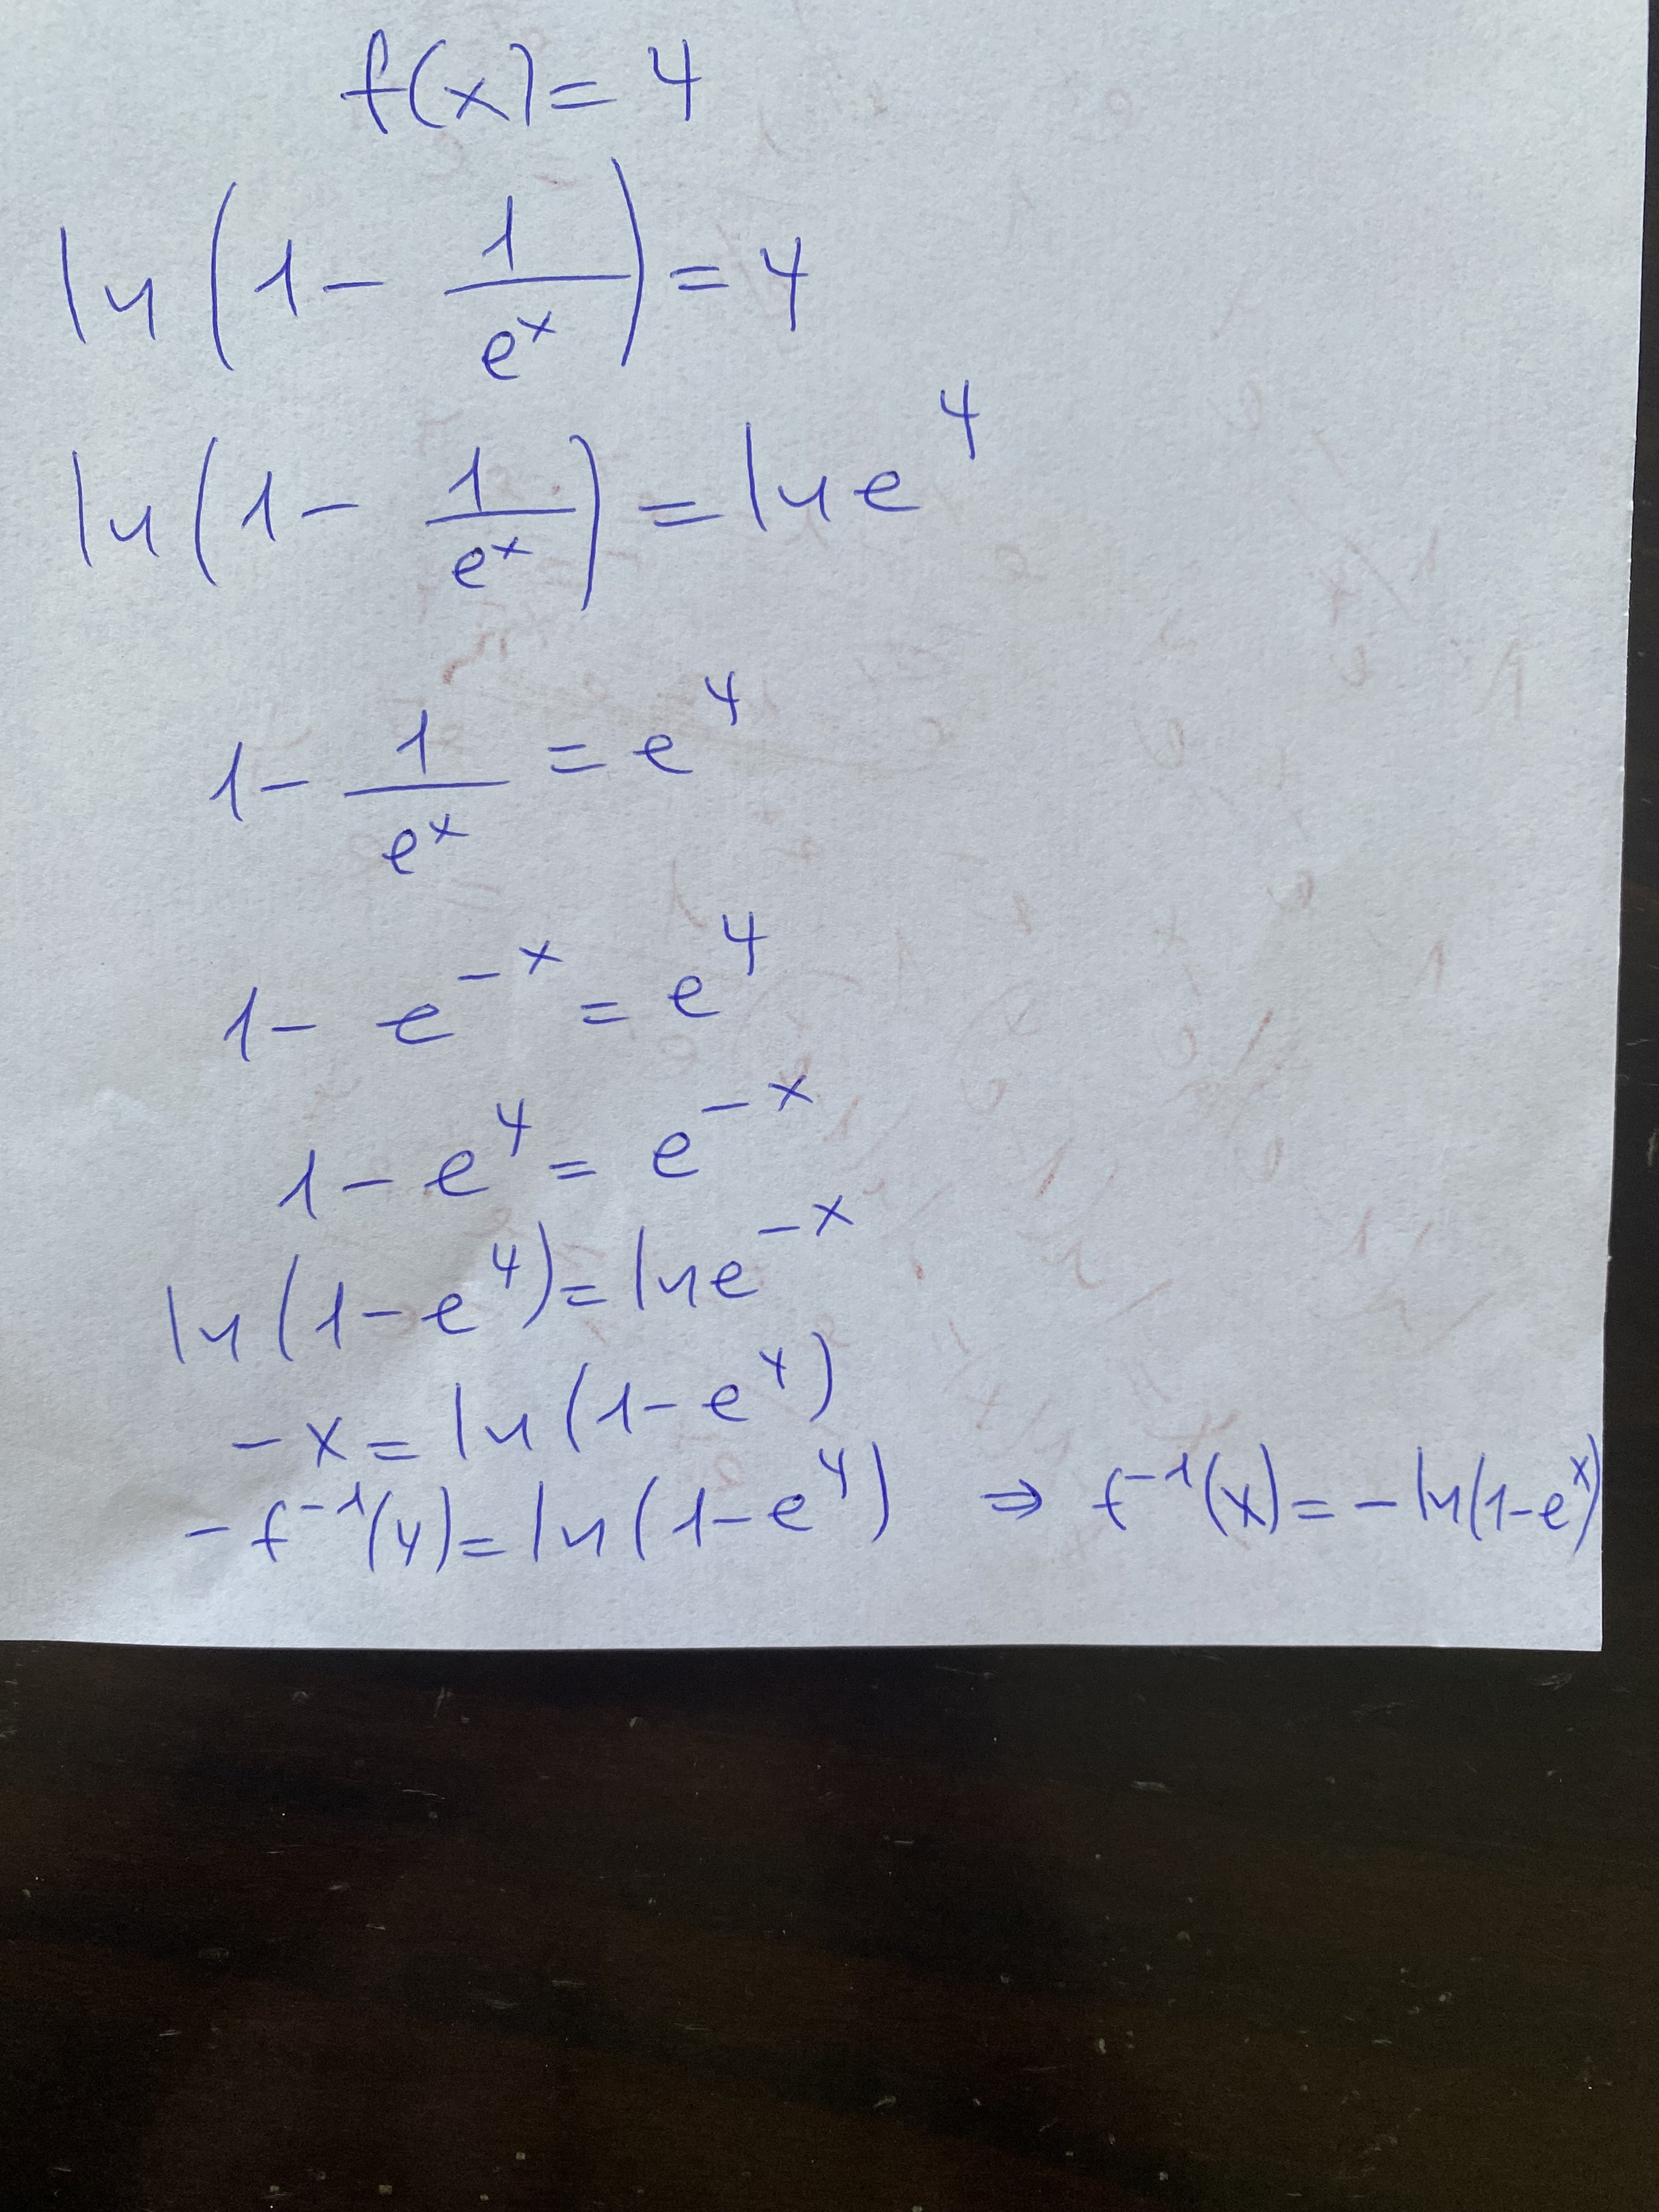 f(x) = y
ln(1 - 1/e^x) = y
ln(1 - 1/e^x) = ln e^y
1 - 1/e^x = e^y
1 - e^-x = e^y
1 - e^y = e^-x
ln(1 - e^y) = ln e^-x
-x = ln(1 - e^y)
-f^-1(y) = ln(1 - e^y) ⇒ f^-1(x) = -ln(1 - e^x)